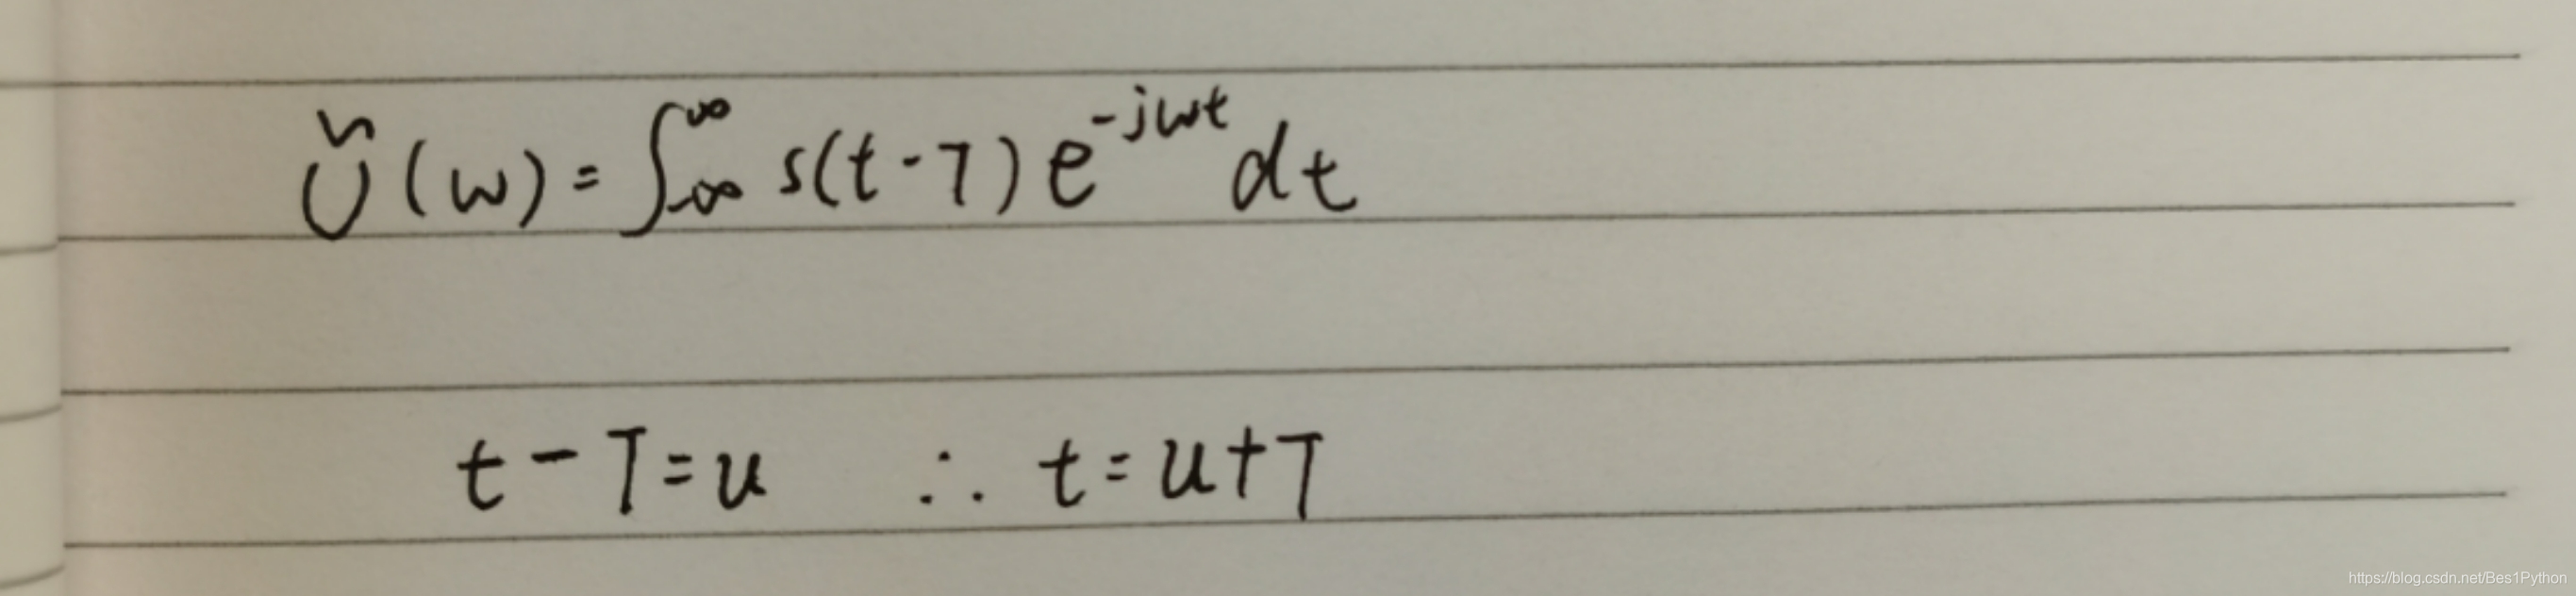 Ũ(w) = ∫_{-∞}^{∞} s(t-T) e^{-jwt} dt
t - T = u ∴ t = u + T
https://blog.csdn.net/Bes1Python